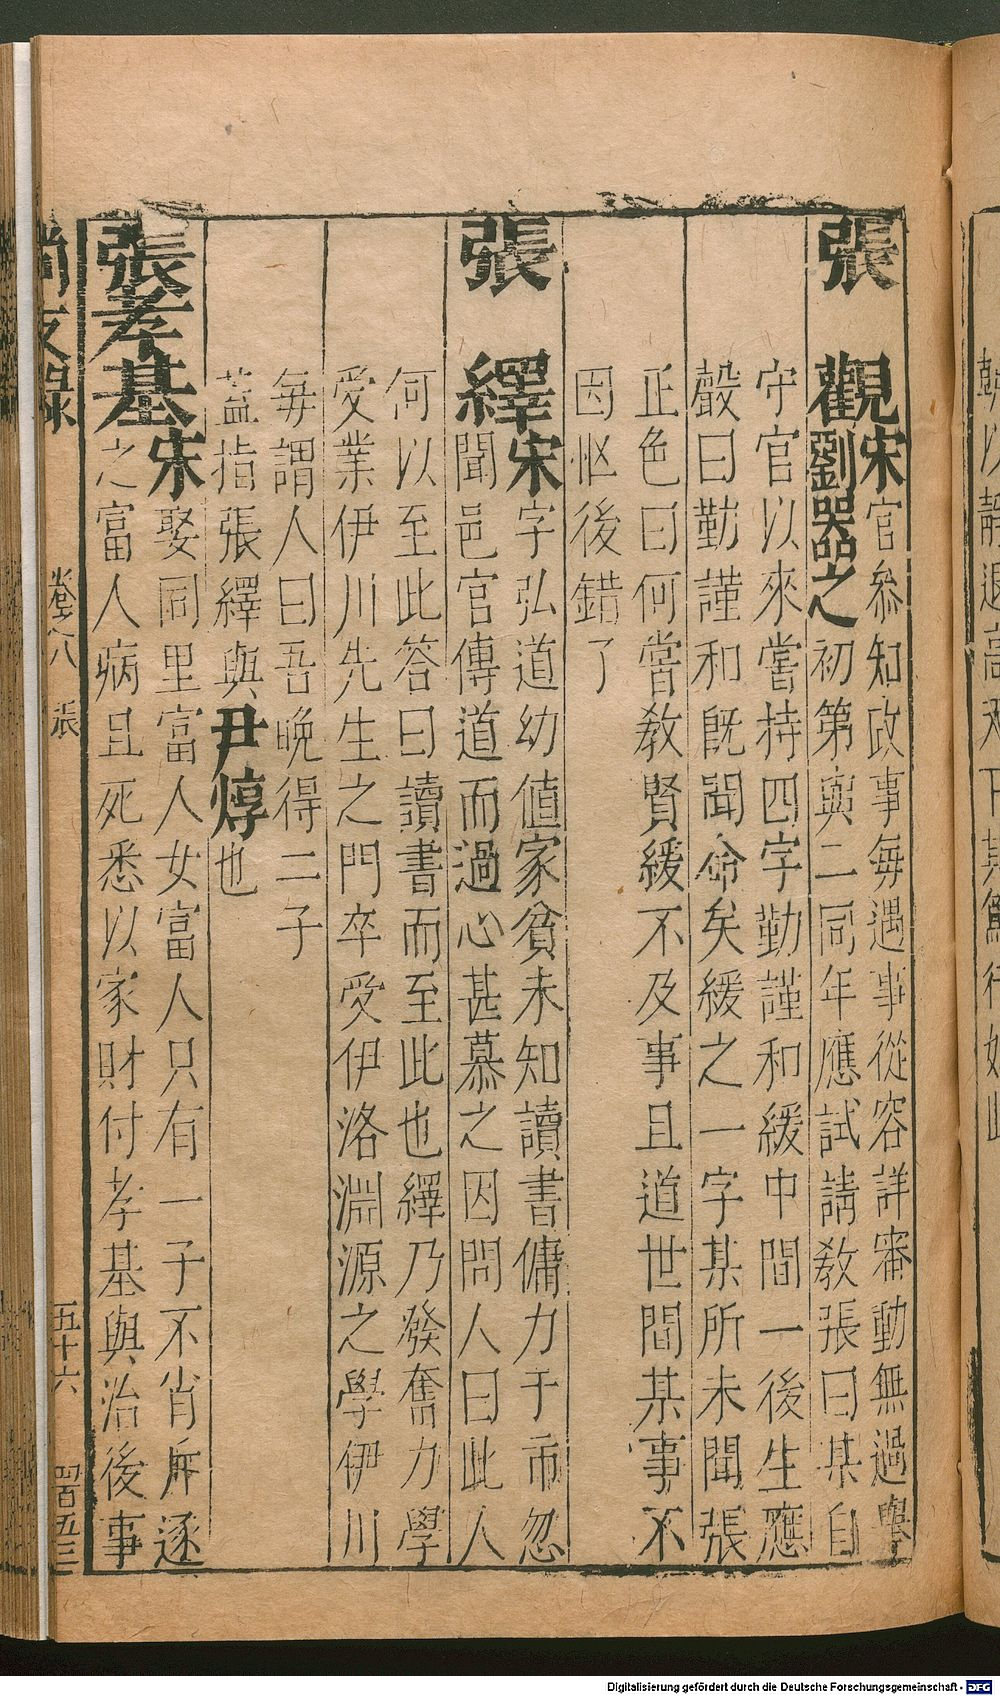 張　觀宋官參知政事每遇事從容詳審動無過舉
劉器之初第與二同年應試請教張曰某自
守官以來嘗持四字勤謹和緩中間一後生應
聲曰勤謹和既聞命矣緩之一字某所未聞張
正色曰何嘗教賢緩不及事且道世間某事不
因忙後錯了
張　繹宋字弘道幼値家貧未知讀書傭力于市忽
聞邑官傳道而過心甚慕之因問人曰此人
何以至此答曰讀書而至此也繹乃發奮力學
受業伊川先生之門卒受伊洛淵源之學伊川
每謂人曰吾晚得二子
蓋指張繹與尹焞也
張孝基宋娶同里富人女富人只有一子不肖斥逐
之富人病且死悉以家財付孝基與治後事
尚友錄　卷之八　張　五十六　四百五三
Digitalisierung gefördert durch die Deutsche Forschungsgemeinschaft - DFG